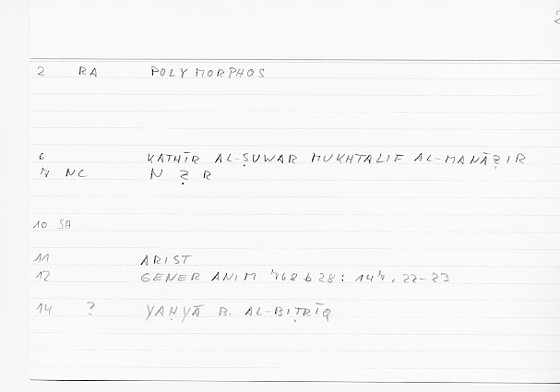 2 RA POLYMORPHOS
6 KATHĪR AL-ṢUWAR MUKHTALIF AL-MANĀẒIR
7 NC N Ẓ R
10 SA
11 ARIST
12 GENER ANIM 768 b 28 : 147, 22-23
14 ? YAḤYĀ B. AL-BIṬRĪQ